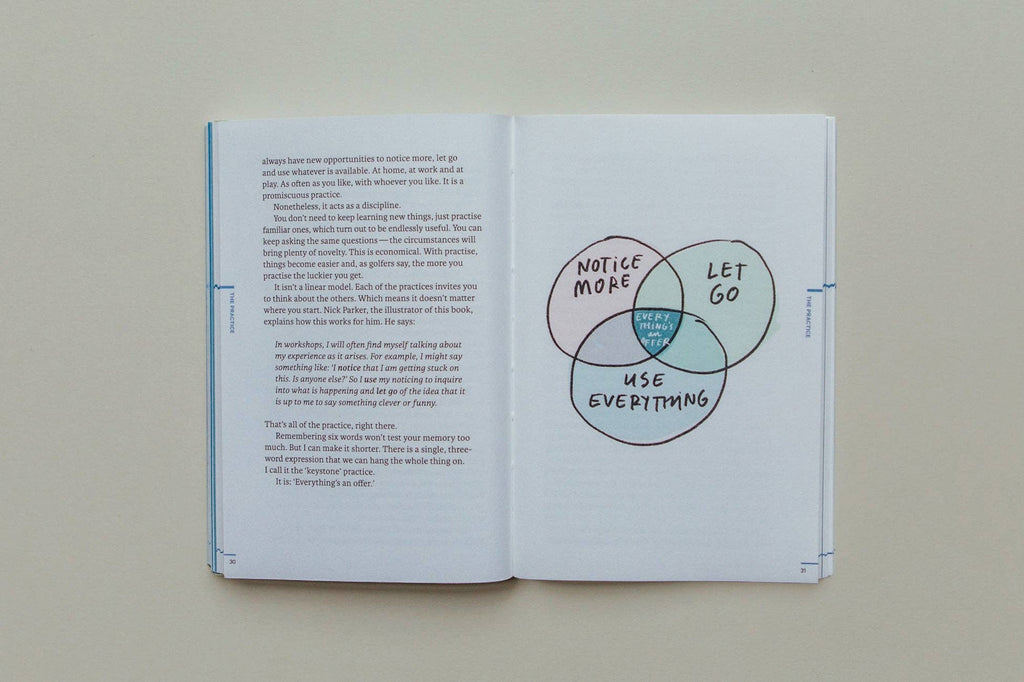 always have new opportunities to notice more, let go
and use whatever is available. At home, at work and at
play. As often as you like, with whoever you like. It is a
promiscuous practice.
Nonetheless, it acts as a discipline.
You don't need to keep learning new things, just practise
familiar ones, which turn out to be endlessly useful. You can
keep asking the same questions — the circumstances will
bring plenty of novelty. This is economical. With practise,
things become easier and, as golfers say, the more you
practise the luckier you get.
It isn't a linear model. Each of the practices invites you
to think about the others. Which means it doesn't matter
where you start. Nick Parker, the illustrator of this book,
explains how this works for him. He says:
In workshops, I will often find myself talking about
my experience as it arises. For example, I might say
something like: 'I notice that I am getting stuck on
this. Is anyone else?' So I use my noticing to inquire
into what is happening and let go of the idea that it
is up to me to say something clever or funny.
That's all of the practice, right there.
Remembering six words won't test your memory too
much. But I can make it shorter. There is a single, three-
word expression that we can hang the whole thing on.
I call it the 'keystone' practice.
It is: 'Everything's an offer.'
THE PRACTICE
30
NOTICE
MORE
LET
GO
EVERY
THING'S
an
OFFER
USE
EVERYTHING
THE PRACTICE
31